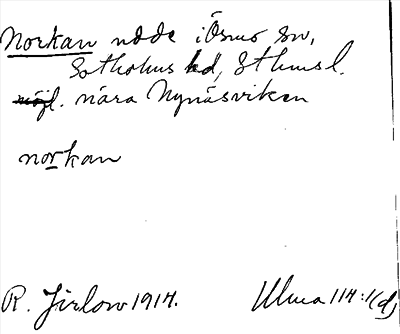 Norkan udde i Ösmo sn,
Sotholms hd, Sthmsl.
nära Nynäsviken
norkan
R. Jirlow 1914. Ulma 114:1(d)